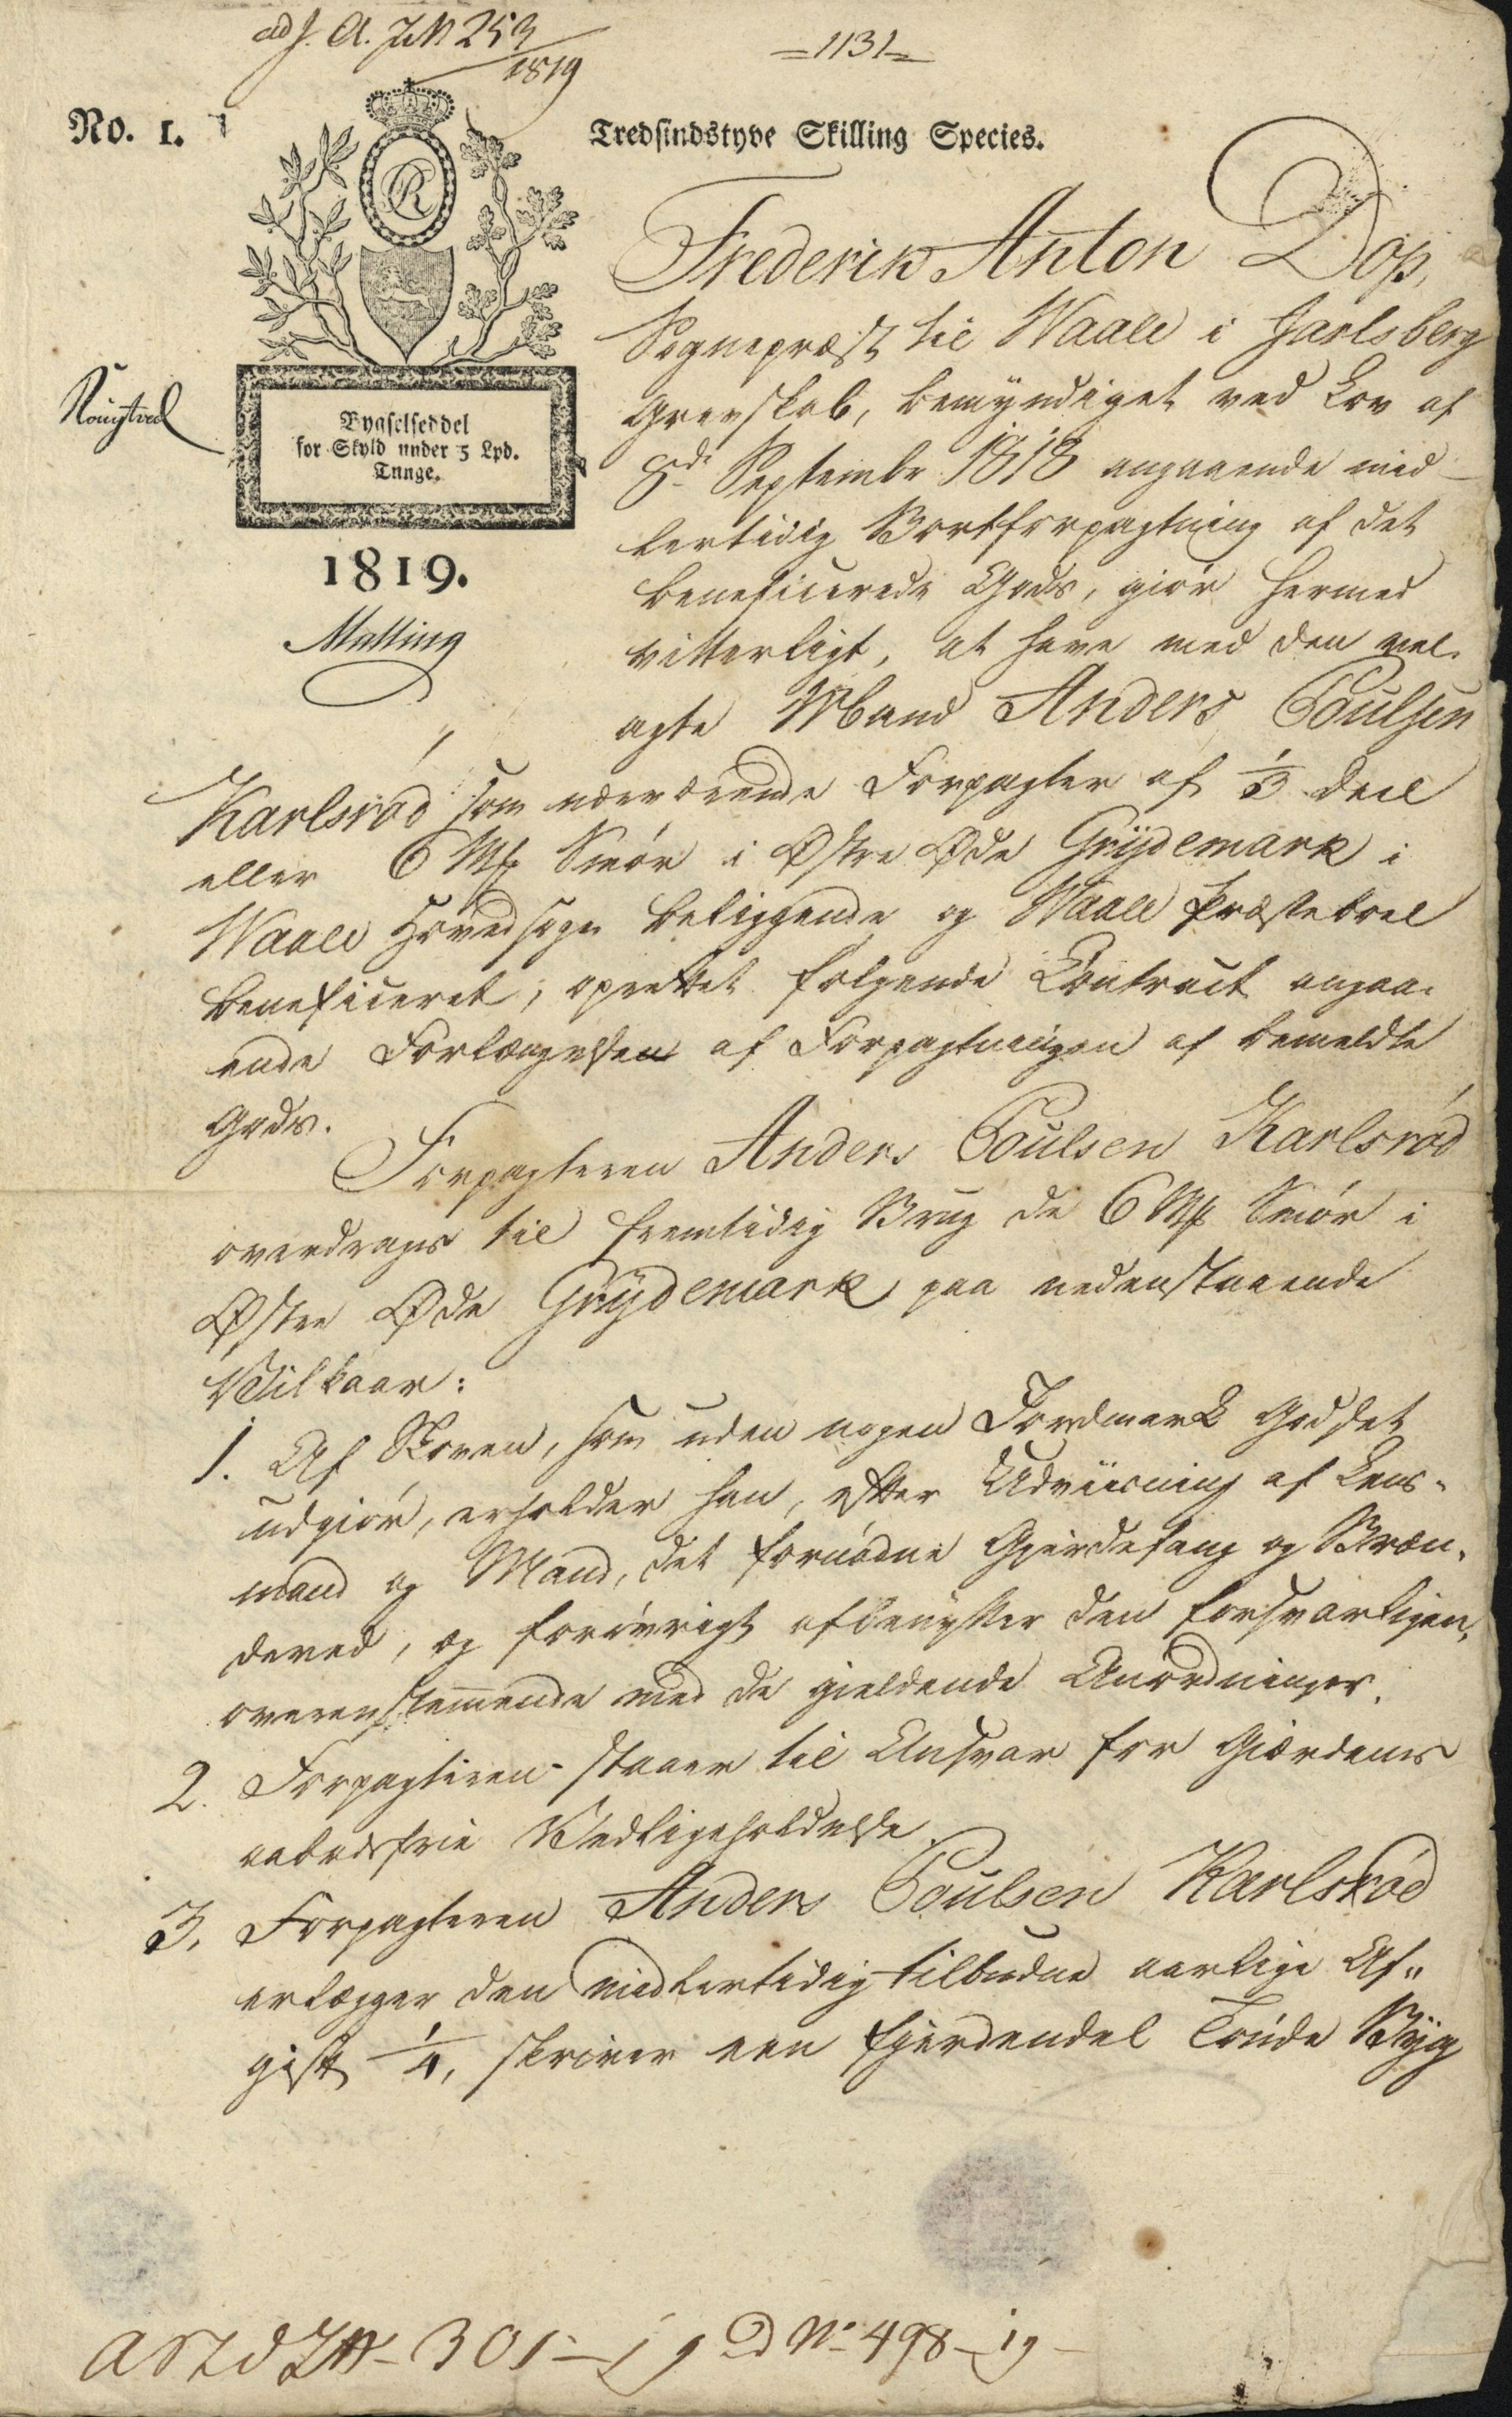 ad J. A. J N 253
1819
=1131=
No. 1.
Tredsindstyve Skilling Species.
R
Bygselseddel
for Skyld under 5 Lpd.
Tunge.
1819.
Matting
Frederik Anton Dop,
Sognepræst til Waale i Jarlsberg
Grevskab, bemyndiget ved Lov af
8de Septembr 1818 angaaende mid-
lertidig Bortforpagtning af det
beneficerede Gods, giør hermed
vitterligt, at have med den vel-
agte Mand Anders Poulsen
Karlsrød som nuværende Forpagter af 1/3 deel
eller 6 Mk Smør i Østre Øde Grydemark i
Waale Hovedsogn beliggende og Waale Præsteboel
beneficeret, oprettet følgende Contract angaa-
ende Forlængelsen af Forpagtningen af bemeldte
Gods.
Forpagteren Anders Poulsen Karlsrød
overdrages til fremtidig Brug de 6 Mk Smør i
Østre Øde Grydemark paa nedenstaaende
Vilkaar:
1. Af Skoven, som uden nogen Jordmark Godset
udgiør, erholder han, efter Udviisning af Lens-
mand og Mænd, det fornødne Gjerdefang og Bræn-
deved, og forøvrigt afbenytter den forsvarligen,
overenstemmende med de gieldende Anordninger.
2. Forpagteren staaer til Ansvar for Giærdenes
aabodsfrie Vedligeholdelse
3. Forpagteren Anders Poulsen Karlsrød
erlægger den midlertidig tilbudne aarlige Af-
gift 1/4, skriver een fjerdendel Tønde Byg
301 19 D No 498 19